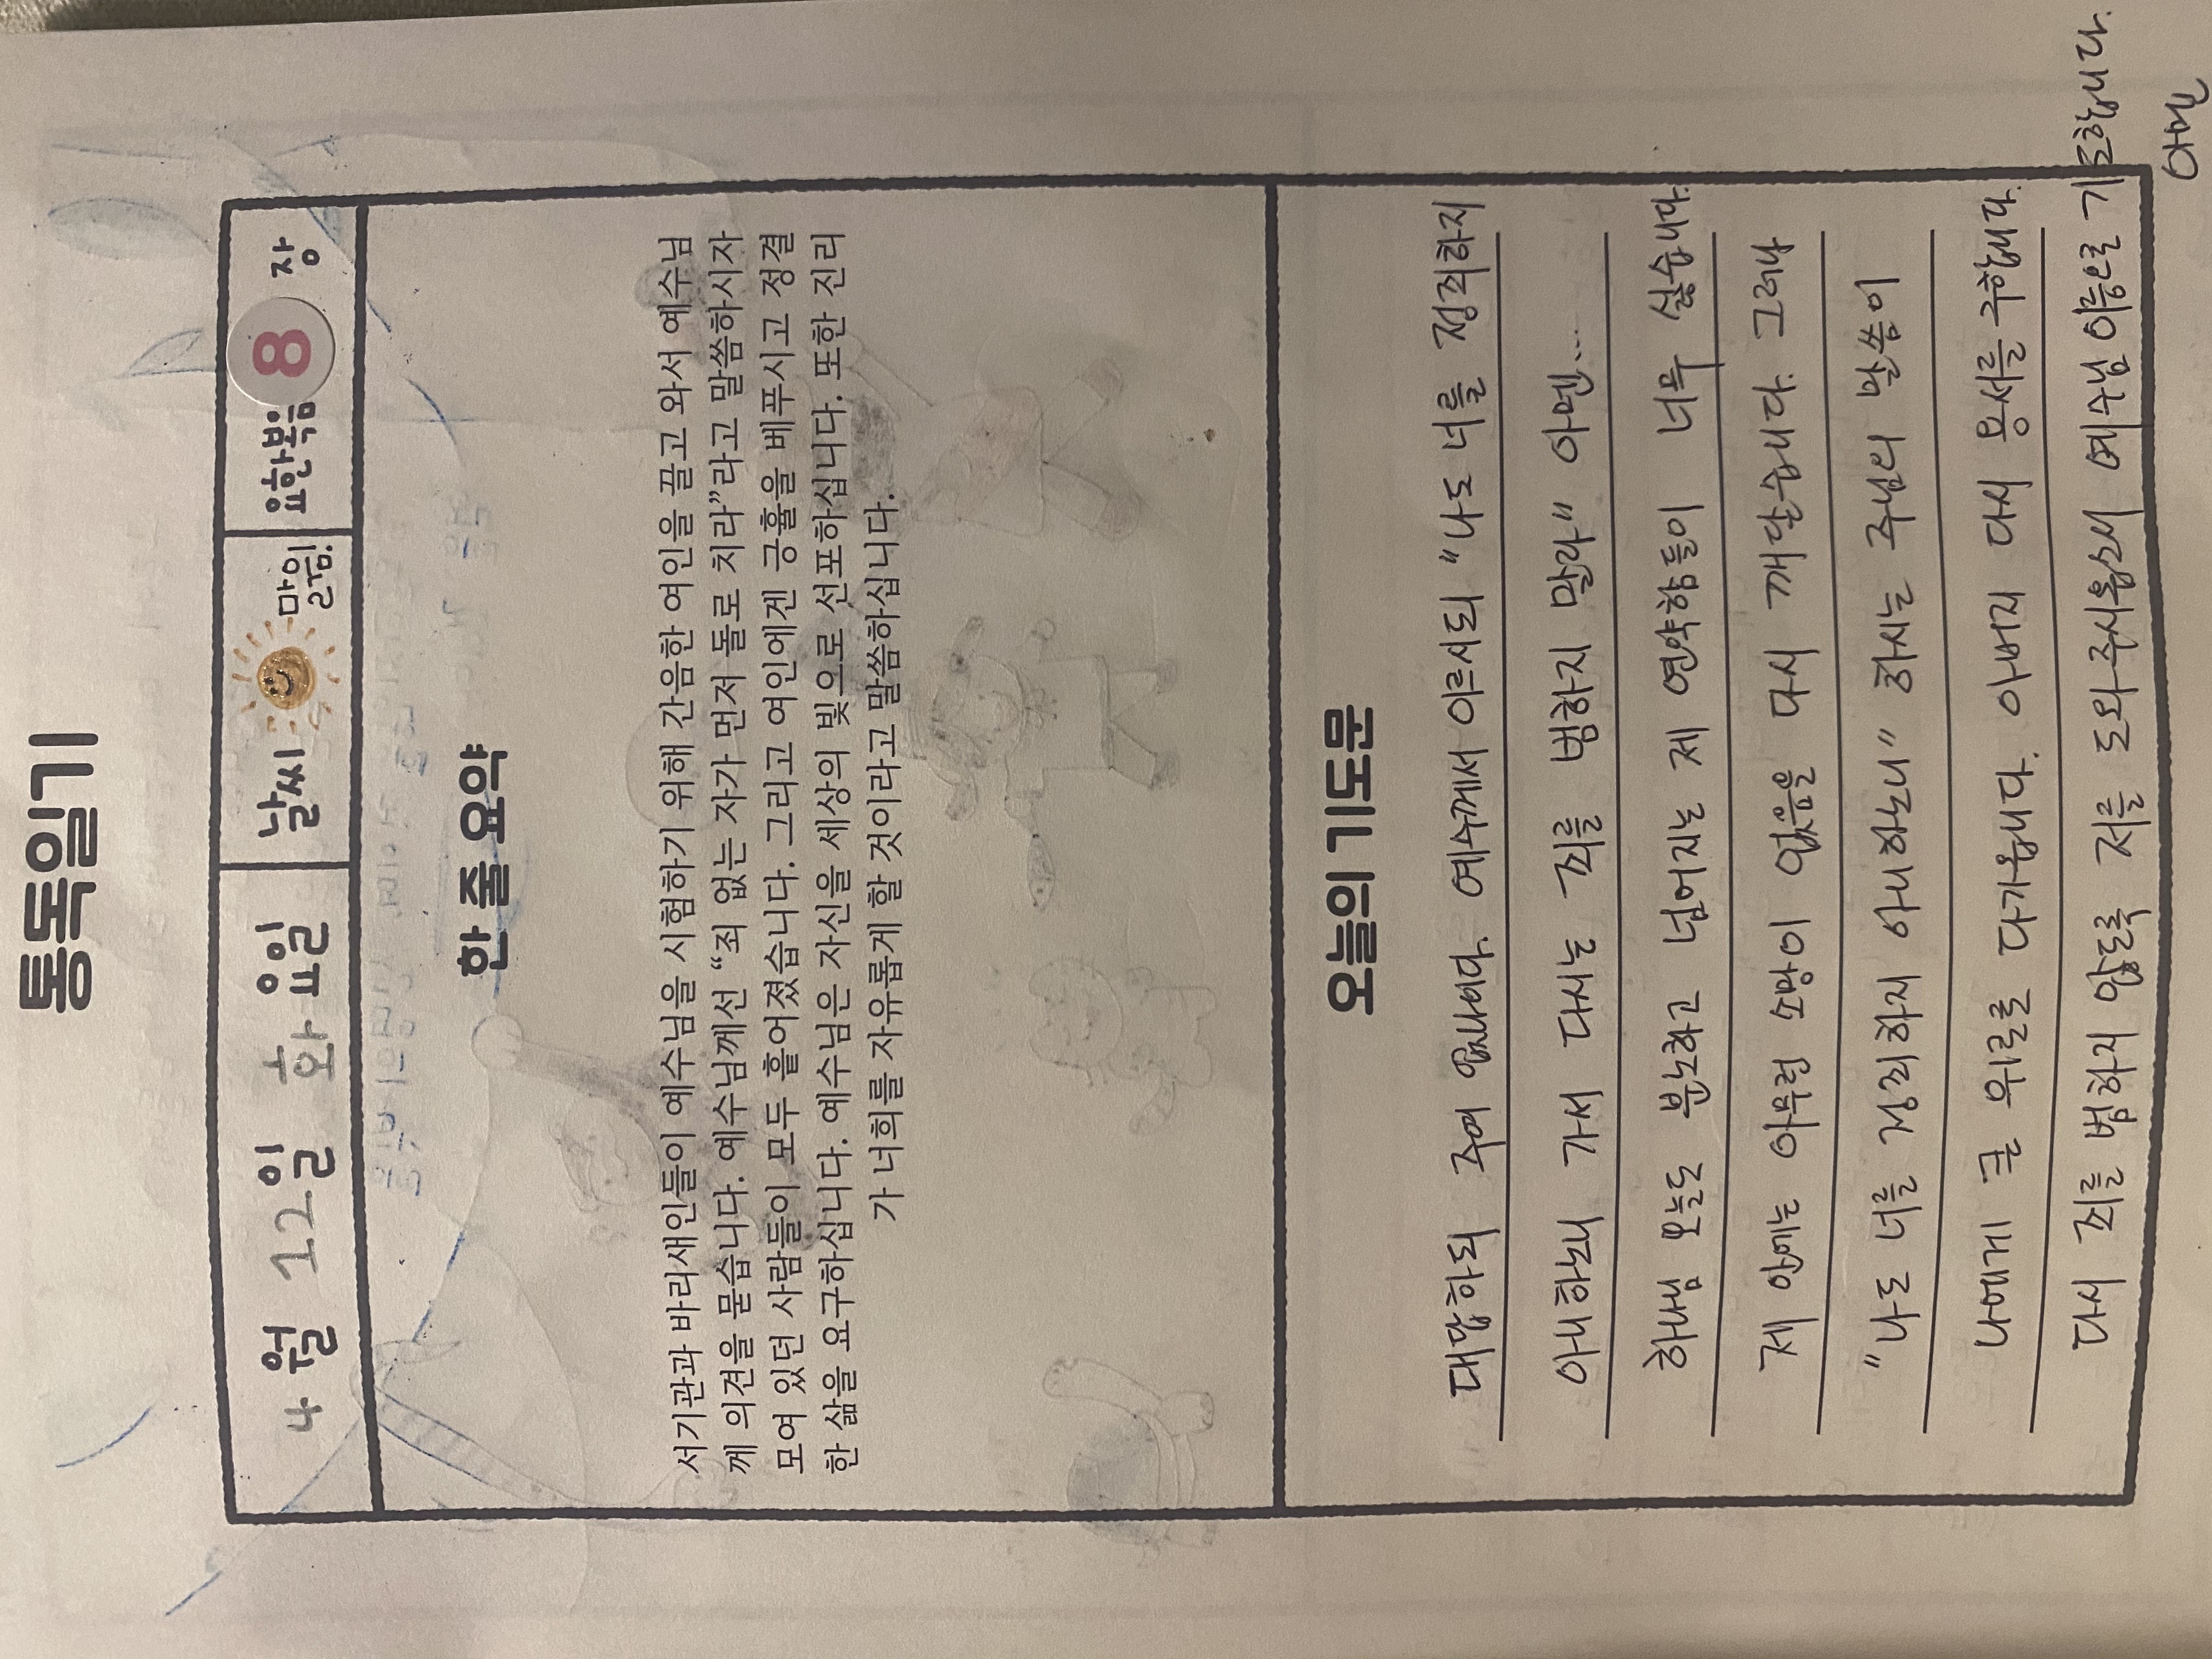 통독일기
4월 12일 화요일 날씨 맑음! 요한복음 8 장
한 줄 요약
서기관과 바리새인들이 예수님을 시험하기 위해 간음한 여인을 끌고 와서 예수님
께 의견을 묻습니다. 예수님께선 “죄 없는 자가 먼저 돌로 치라”라고 말씀하시자
모여 있던 사람들이 모두 흩어졌습니다. 그리고 여인에겐 긍휼을 베푸시고 정결
한 삶을 요구하십니다. 예수님은 자신을 세상의 빛으로 선포하십니다. 또한 진리
가 너희를 자유롭게 할 것이라고 말씀하십니다.
오늘의 기도문
대답하되 주여 없나이다. 예수께서 이르시되 "나도 너를 정죄하지
아니하노니 가서 다시는 죄를 범하지 말라" 아멘...
하나님 오늘도 분노하고 넘어지는 제 연약함들이 너무 싫습니다.
제 안에는 아무런 소망이 없음을 다시 깨닫습니다. 그러나
"나도 너를 정죄하지 아니하노니" 하시는 주님의 말씀이
나에게 큰 위로로 다가옵니다. 아버지 다시 용서를 구합니다.
다시 죄를 범하지 않도록 저를 도와주시옵소서 예수님 이름으로 기도합니다.
아멘